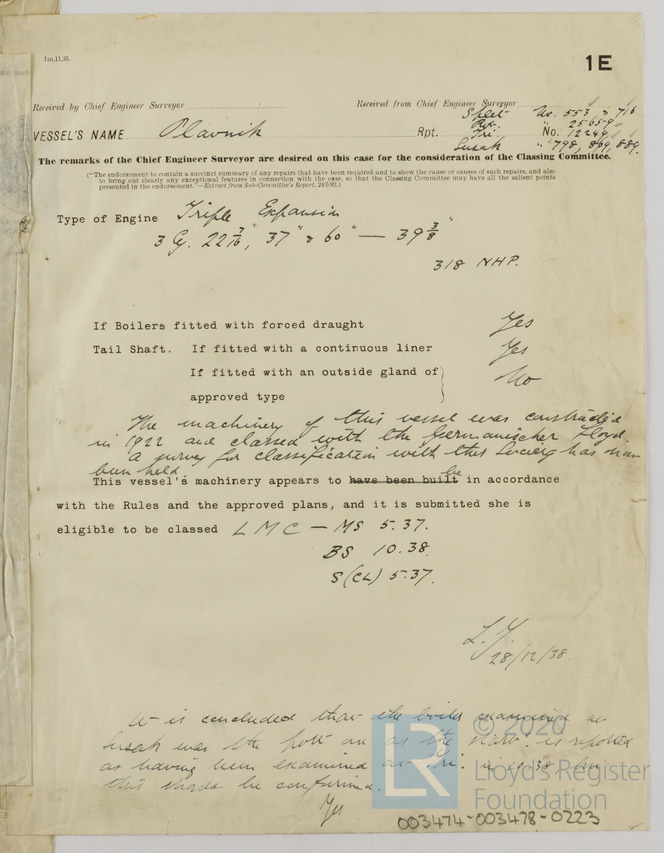 1m.11.35.
1E
Received by Chief Engineer Surveyor
Received from Chief Engineer Surveyor
Split No. 553 & 716
Rpt. " 25659
VESSEL'S NAME Olavnik
Rpt. Tri. No. 12249
Susak " 798, 869, 889.
The remarks of the Chief Engineer Surveyor are desired on this case for the consideration of the Classing Committee.
("The endorsement to contain a succinct summary of any repairs that have been required and to show the cause or causes of such repairs, and also
to bring out clearly any exceptional features in connection with the case, so that the Classing Committee may have all the salient points
presented in the endorsement."—Extract from Sub-Committee's Report, 24/5/92.)
Type of Engine Triple Expansion
3 Cy. 22 3/16", 37" & 60" — 39 3/8"
318 NHP.
If Boilers fitted with forced draught Yes
Tail Shaft. If fitted with a continuous liner Yes
If fitted with an outside gland of
approved type No
The machinery of this vessel was constructed
in 1922 and classed with the Germanischer Lloyd.
A survey for classification with this Society has now
been held.
This vessel's machinery appears to have been built be in accordance
with the Rules and the approved plans, and it is submitted she is
eligible to be classed LMC — MS 5.37.
BS 10.38.
S(CL) 5.37.
L.Y.
28/12/38.
It is concluded that the boiler examined at
Susak was the port one as the starb: is reported
as having been examined at Tri: in 10.38 but
this should be confirmed.
Yes
© 2020
LR
Lloyd's Register
Foundation
003474-003478-0223